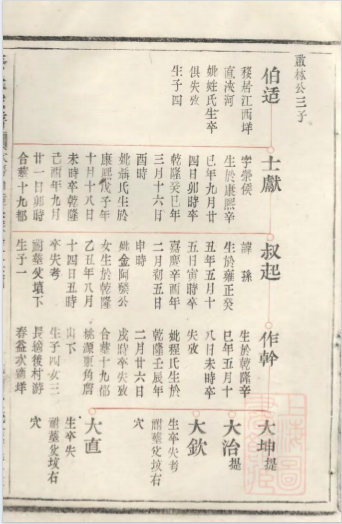 肅林公三子
伯适
移居江西洋
直淡河
妣姓氏生卒
俱失攷
生子四
士獻
字榮侯
生於康熙辛
巳年九月廿
四日卯時卒
乾隆癸巳年
三月十六日
酉時
妣　氏生於
康熙戊子年
十月十八日
未時卒乾隆
己酉年九月
廿一日卯時
合葬十九都
叔起
諱孫
生於雍正癸
丑年五月十
五日寅時卒
嘉慶辛酉年
二月初五日
申時
妣金阿　公
女生於乾隆
乙丑年八月
十四日丑時
卒失考
祔葬父墳下
生子一
作幹
生於乾隆辛
巳年五月十
八日未時卒
失攷
妣程氏生於
乾隆壬辰年
二月廿六日
戌時卒失攷
合葬十九都
桃源東角塢
山下
生子四女三
長適後村游
春益次適洋
大坤
提
大治
提
大欽
生卒失考
祔葬父坟右
穴
大直
生卒失
祔葬父坟右
穴